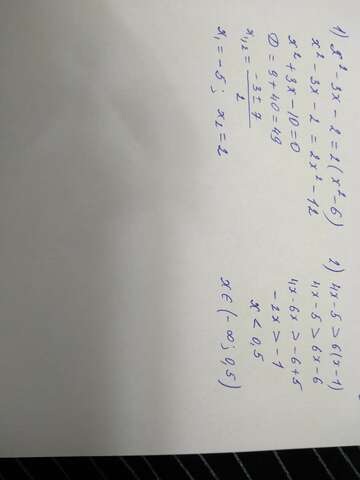 1) x² - 3x - 2 = 2(x² - 6)
x² - 3x - 2 = 2x² - 12
x² + 3x - 10 = 0
D = 9 + 40 = 49
x₁,₂ = (-3 ± 7) / 2
x₁ = -5; x₂ = 2
2) 4x - 5 > 6(x - 1)
4x - 5 > 6x - 6
4x - 6x > -6 + 5
-2x > -1
x < 0,5
x ∈ (-∞; 0,5)